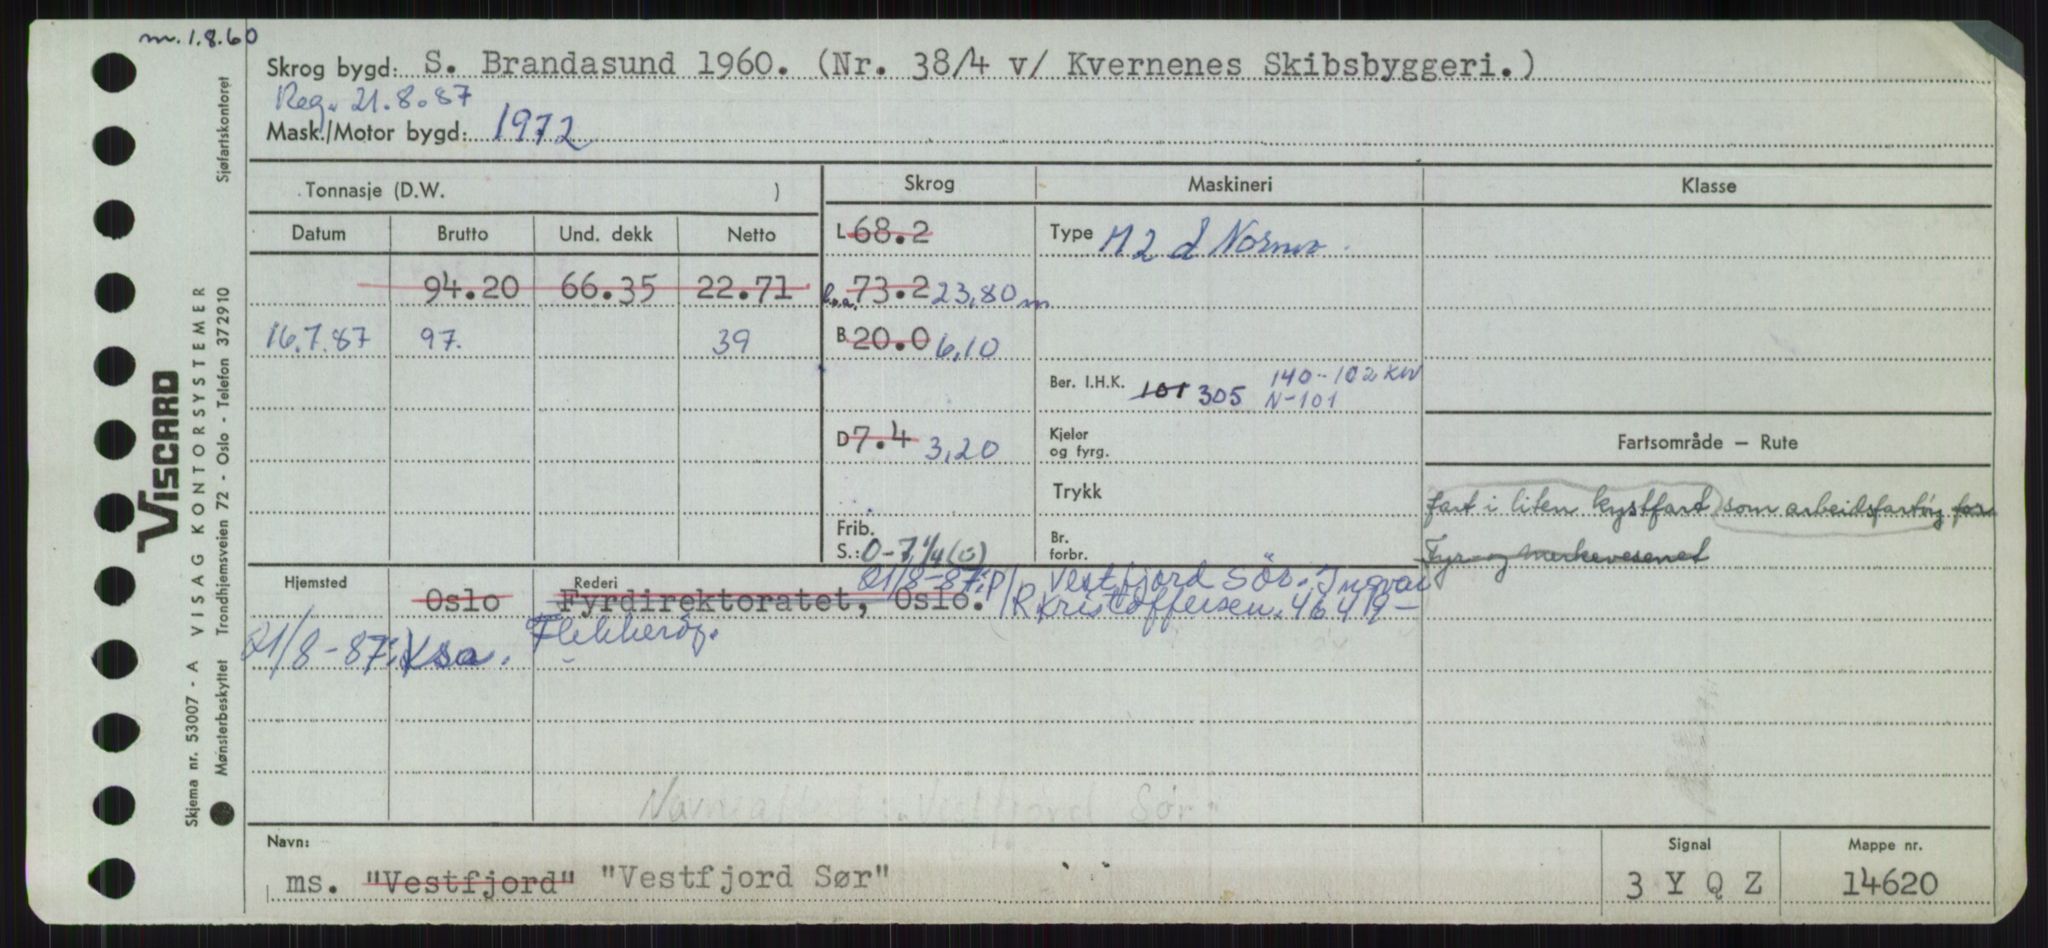 m. 1.8.60
Skrog bygd: S. Brandasund 1960. (Nr. 38/4 v/ Kvernenes Skibsbyggeri.)
Reg. 21.8.87
Mask./Motor bygd: 1972
Tonnasje (D.W. )
Skrog
Maskineri
Klasse
Datum
Brutto
Und. dekk
Netto
L 68.2
Type M 2 d Normo.
94.20 66.35 22.71
L.o.a. 73.2 23,80 m
16.7.87 97. 39
B 20.0 6,10
Ber. I.H.K. 101 305 140-102 KW
N-101
D 7.4 3,20
Kjeler
og fyrg.
Fartsområde — Rute
Trykk
fart i liten kystfart som arbeidsfartøy for
Fyr- og Merkevesenet
Frib.
S.: 0-7 1/4 (0)
Br.
forbr.
Hjemsted
Rederi
Oslo
Fyrdirektoratet, Oslo.
21/8-87: P/R Vestfjord Sör. Ingvar
Kristoffersen. 4649-
Flekkeröy.
21/8-87: Ksa.
Navneattest: "Vestfjord Sør"
Navn:
ms. "Vestfjord" "Vestfjord Sør"
Signal
3 Y Q Z
Mappe nr.
14620
VISCARD
Skjema nr. 53007 - A VISAG KONTORSYSTEMER
Mønsterbeskyttet Trondhjemsveien 72 - Oslo - Telefon 372910
Sjøfartskontoret